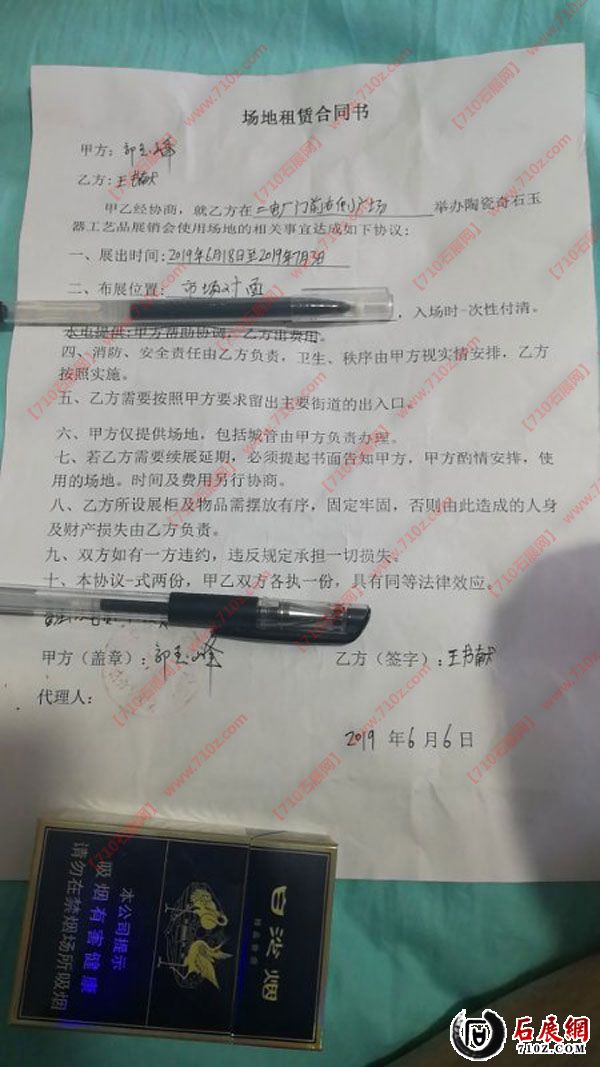 场地租赁合同书
甲方：
乙方：王书献
甲乙经协商，就乙方在二电厂门前右侧广场举办陶瓷奇石玉
器工艺品展销会使用场地的相关事宜达成如下协议：
一、展出时间：2019年6月18日至2019年7月3日
二、布展位置：市场对面
，入场时-次性付清。
水电提供：甲方帮助协调，乙方出费用。
四、消防、安全责任由乙方负责，卫生、秩序由甲方视实情安排，乙方
按照实施。
五、乙方需要按照甲方要求留出主要街道的出入口。
六、甲方仅提供场地，包括城管由甲方负责办理。
七、若乙方需要续展延期，必须提起书面告知甲方，甲方酌情安排，使
用的场地。时间及费用另行协商。
八、乙方所设展柜及物品需摆放有序，固定牢固，否则由此造成的人身
及财产损失由乙方负责。
九、双方如有一方违约，违反规定承担一切损失。
十、本协议-式两份，甲乙双方各执一份，具有同等法律效应。
甲方（盖章）：
乙方（签字）：王书献
代理人：
2019 年 6 月 6 日
白沙烟
精品香烟
本公司提示
吸烟有害健康
请勿在禁烟场所吸烟
【710石展网】www.710z.com
石展網
710Z.COM